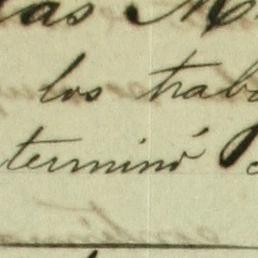 las M
los trab
terminó